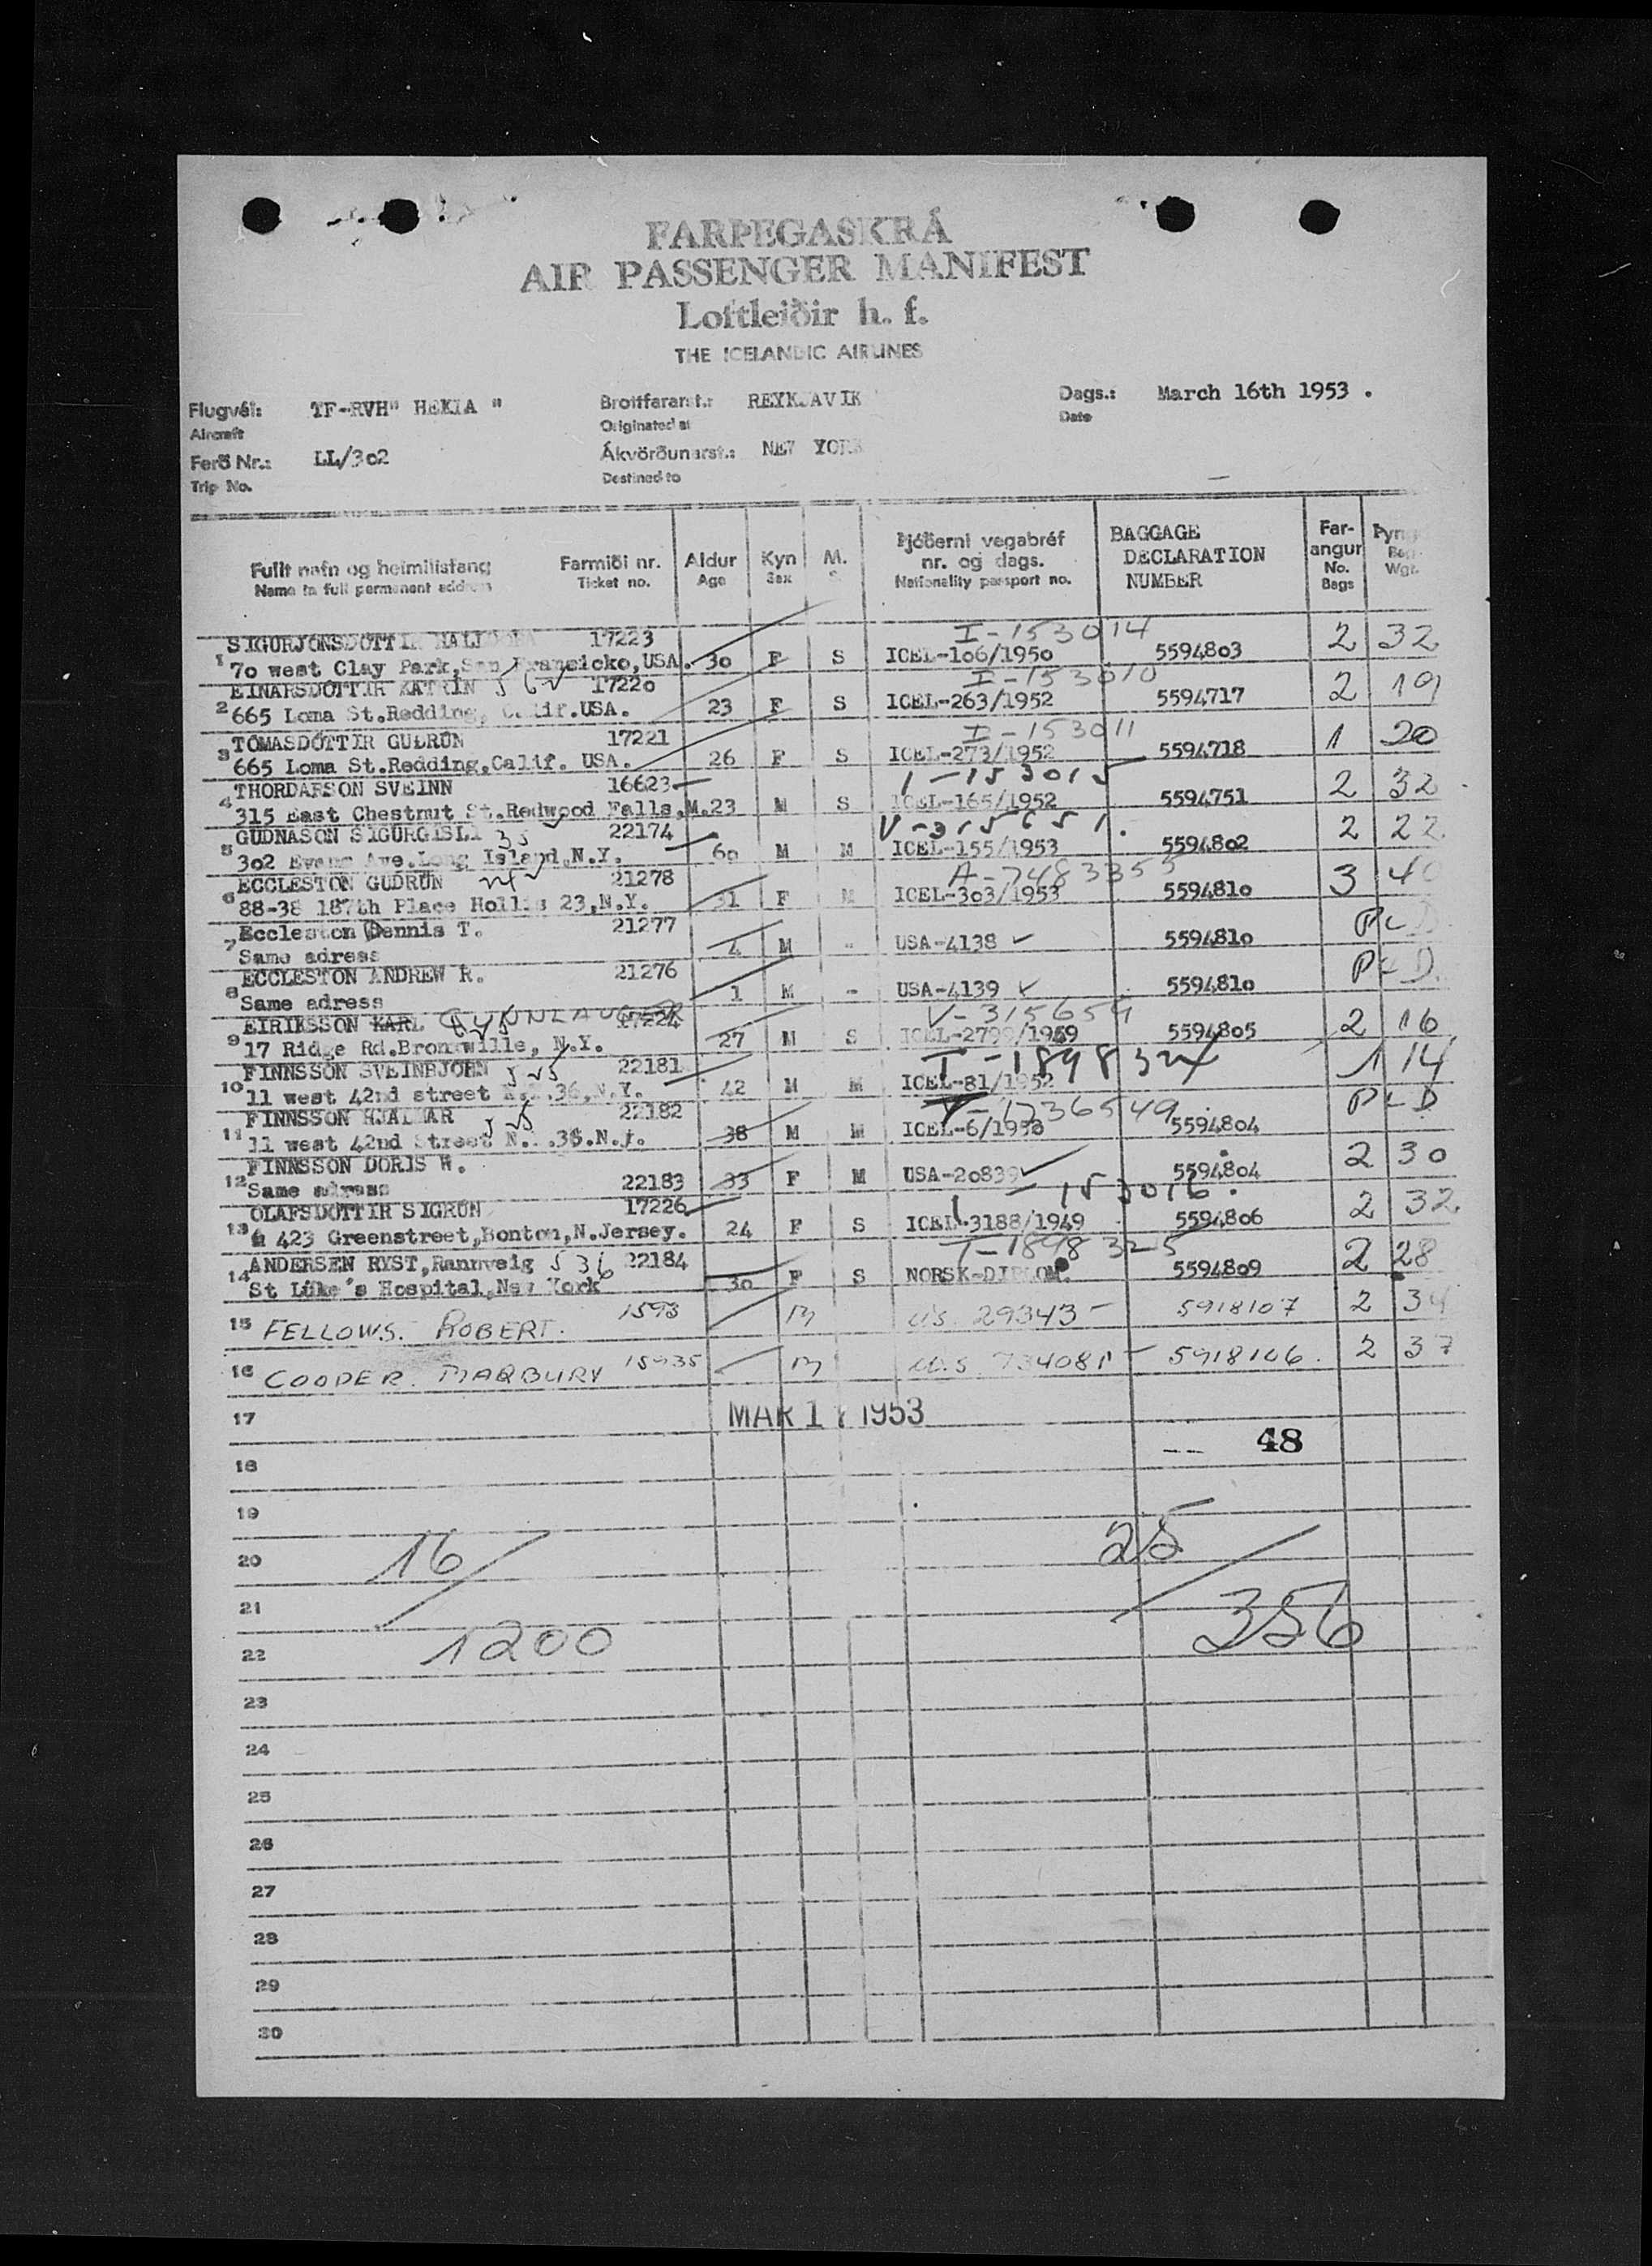 FARÞEGASKRÁ
AIR PASSENGER MANIFEST
Loftleiðir h. f.
THE ICELANDIC AIRLINES
Flugvél: TF-RVH" HEKLA " Brottfararst.: REYKJAVIK Dags.: March 16th 1953 .
Aircraft Originated at Date
Ferð Nr.: LL/3o2 Ákvörðunarst.: NEW YORK
Trip No. Destined to
Fullt nafn og heimilisfang Farmiði nr. Aldur Kyn M. Þjóðerni vegabréf nr. og dags. BAGGAGE DECLARATION NUMBER Far-angur Þyng
Name in full permanent address Ticket no. Age Sex S Nationality passport no. No. Bags Wgt.
SIGURJONSDOTTIR 17223 I-153014
1 7o west Clay Park,San Francicko,USA. 3o F S ICEL-1o6/195o 55948o3 2 32
EINARSDOTTIR KATRIN 1722o I-153010
2 665 Loma St.Redding, Calif.USA. 23 F S ICEL-263/1952 5594717 2 19
TOMASDÓTTIR GUÐRÚN 17221 I-153011
3 665 Loma St.Redding.Calif. USA. 26 F S ICEL-273/1952 5594718 1 20
THORDARSON SVEINN 16623 I-153015
4 315 East Chestnut St.Redwood Falls,M. 23 M S ICEL-165/1952 5594751 2 32
GUDNASON SIGURGISLI 35 22174 V-315651.
5 3o2 Evans Ave.Long Island,N.Y. 6o M M ICEL-155/1953 55948o2 2 22
ECCLESTON GUÐRÚN 21278 A-7483355
6 88-38 187th Place Hollis 23,N.Y. 31 F M ICEL-3o3/1953 559481o 3 40
Eccleston Dennis T. 21277
7 Same adress 4 M - USA-4138 559481o P L D
ECCLESTON ANDREW R. 21276
8 Same adress 1 M - USA-4139 559481o P L D.
EIRIKSSON KARL GUNNLAUGUR 17224 V-315659
9 17 Ridge Rd.Bronxwille, N.Y. 27 M S 55948o5 2 16
FINNSSON SVEINBJORN 22181 T-1898324
10 11 west 42nd street N.Y.36,N.Y. 42 M M ICEL-81/1952 1 14
FINNSSON HJALMAR 22182 V-1736549
11 11 west 42nd Street 38 M M ICEL-6/195o 55948o4 P L D
FINNSSON DORIS W.
12 Same adress 22183 33 F M USA-2o839 55948o4 2 30
OLAFSDOTTIR SIGRÚN 17226 I-153016.
13 423 Greenstreet,Bonton,N.Jersey. 24 F S ICEL.3188/1949 55948o6 2 32
ANDERSEN RYST,Rannveig 536 22184 T-1898325
14 St Lüke's Hospital,New York 3o F S NORSK-DIPLOM. 55948o9 2 28
15 FELLOWS. ROBERT. 1593 M U.S. 29343 - 5918107 2 34
16 COOPER. MARBURY 15935 M U.S 734081 - 5918106. 2 37
17 MAR 17 1953
48
18
19
20 16 25
21
22 1200 356
23
24
25
26
27
28
29
30